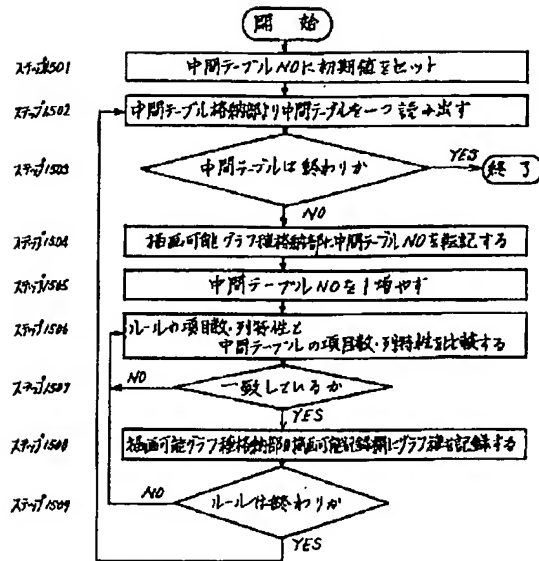 開始
ステップ1501
中間テーブルNOに初期値をセット
ステップ1502
中間テーブル格納部より中間テーブルを一つ読み出す
ステップ1503
中間テーブルは終わりか
YES
終了
NO
ステップ1504
描画可能グラフ種格納部に中間テーブルNOを転記する
ステップ1505
中間テーブルNOを1増やす
ステップ1506
ルールの項目数・列特性と
中間テーブルの項目数・列特性を比較する
ステップ1507
NO
一致しているか
YES
ステップ1508
描画可能グラフ種格納部の描画可能記録欄にグラフ種を記録する
ステップ1509
NO
ルールは終わりか
YES